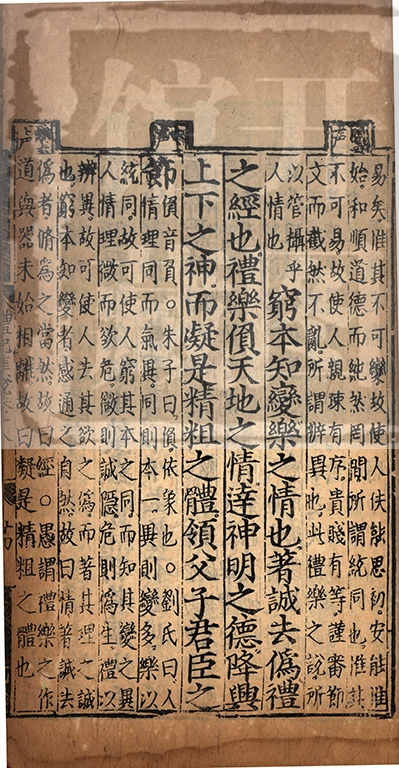 易矣惟其不可變故使人佚能思初安能惟
始和順道德而純然罔間所謂統同也惟其
不可易故使人親疎有序貴賤有等謹審節
文而截然不亂所謂辨異也此禮樂之說所
以管攝乎
人情也
窮本知變樂之情也著誠去偽禮
之經也禮樂偩天地之情達神明之德降興
上下之神而凝是精粗之體領父子君臣之
節
偩音負○朱子曰偩依象也○劉氏曰人
情理同而氣異同則本一異則變多樂以
統同故可使人窮其本之同而知其變之異
人情理微而欲危微則誠隱危則偽生禮以
辨異故可使人去其欲之偽而著其理之誠
也窮本知變者感通之自然故曰情著誠去
偽者脩為之當然故曰經○愚謂禮樂之作
道與器未始相離故曰凝是精粗之體也